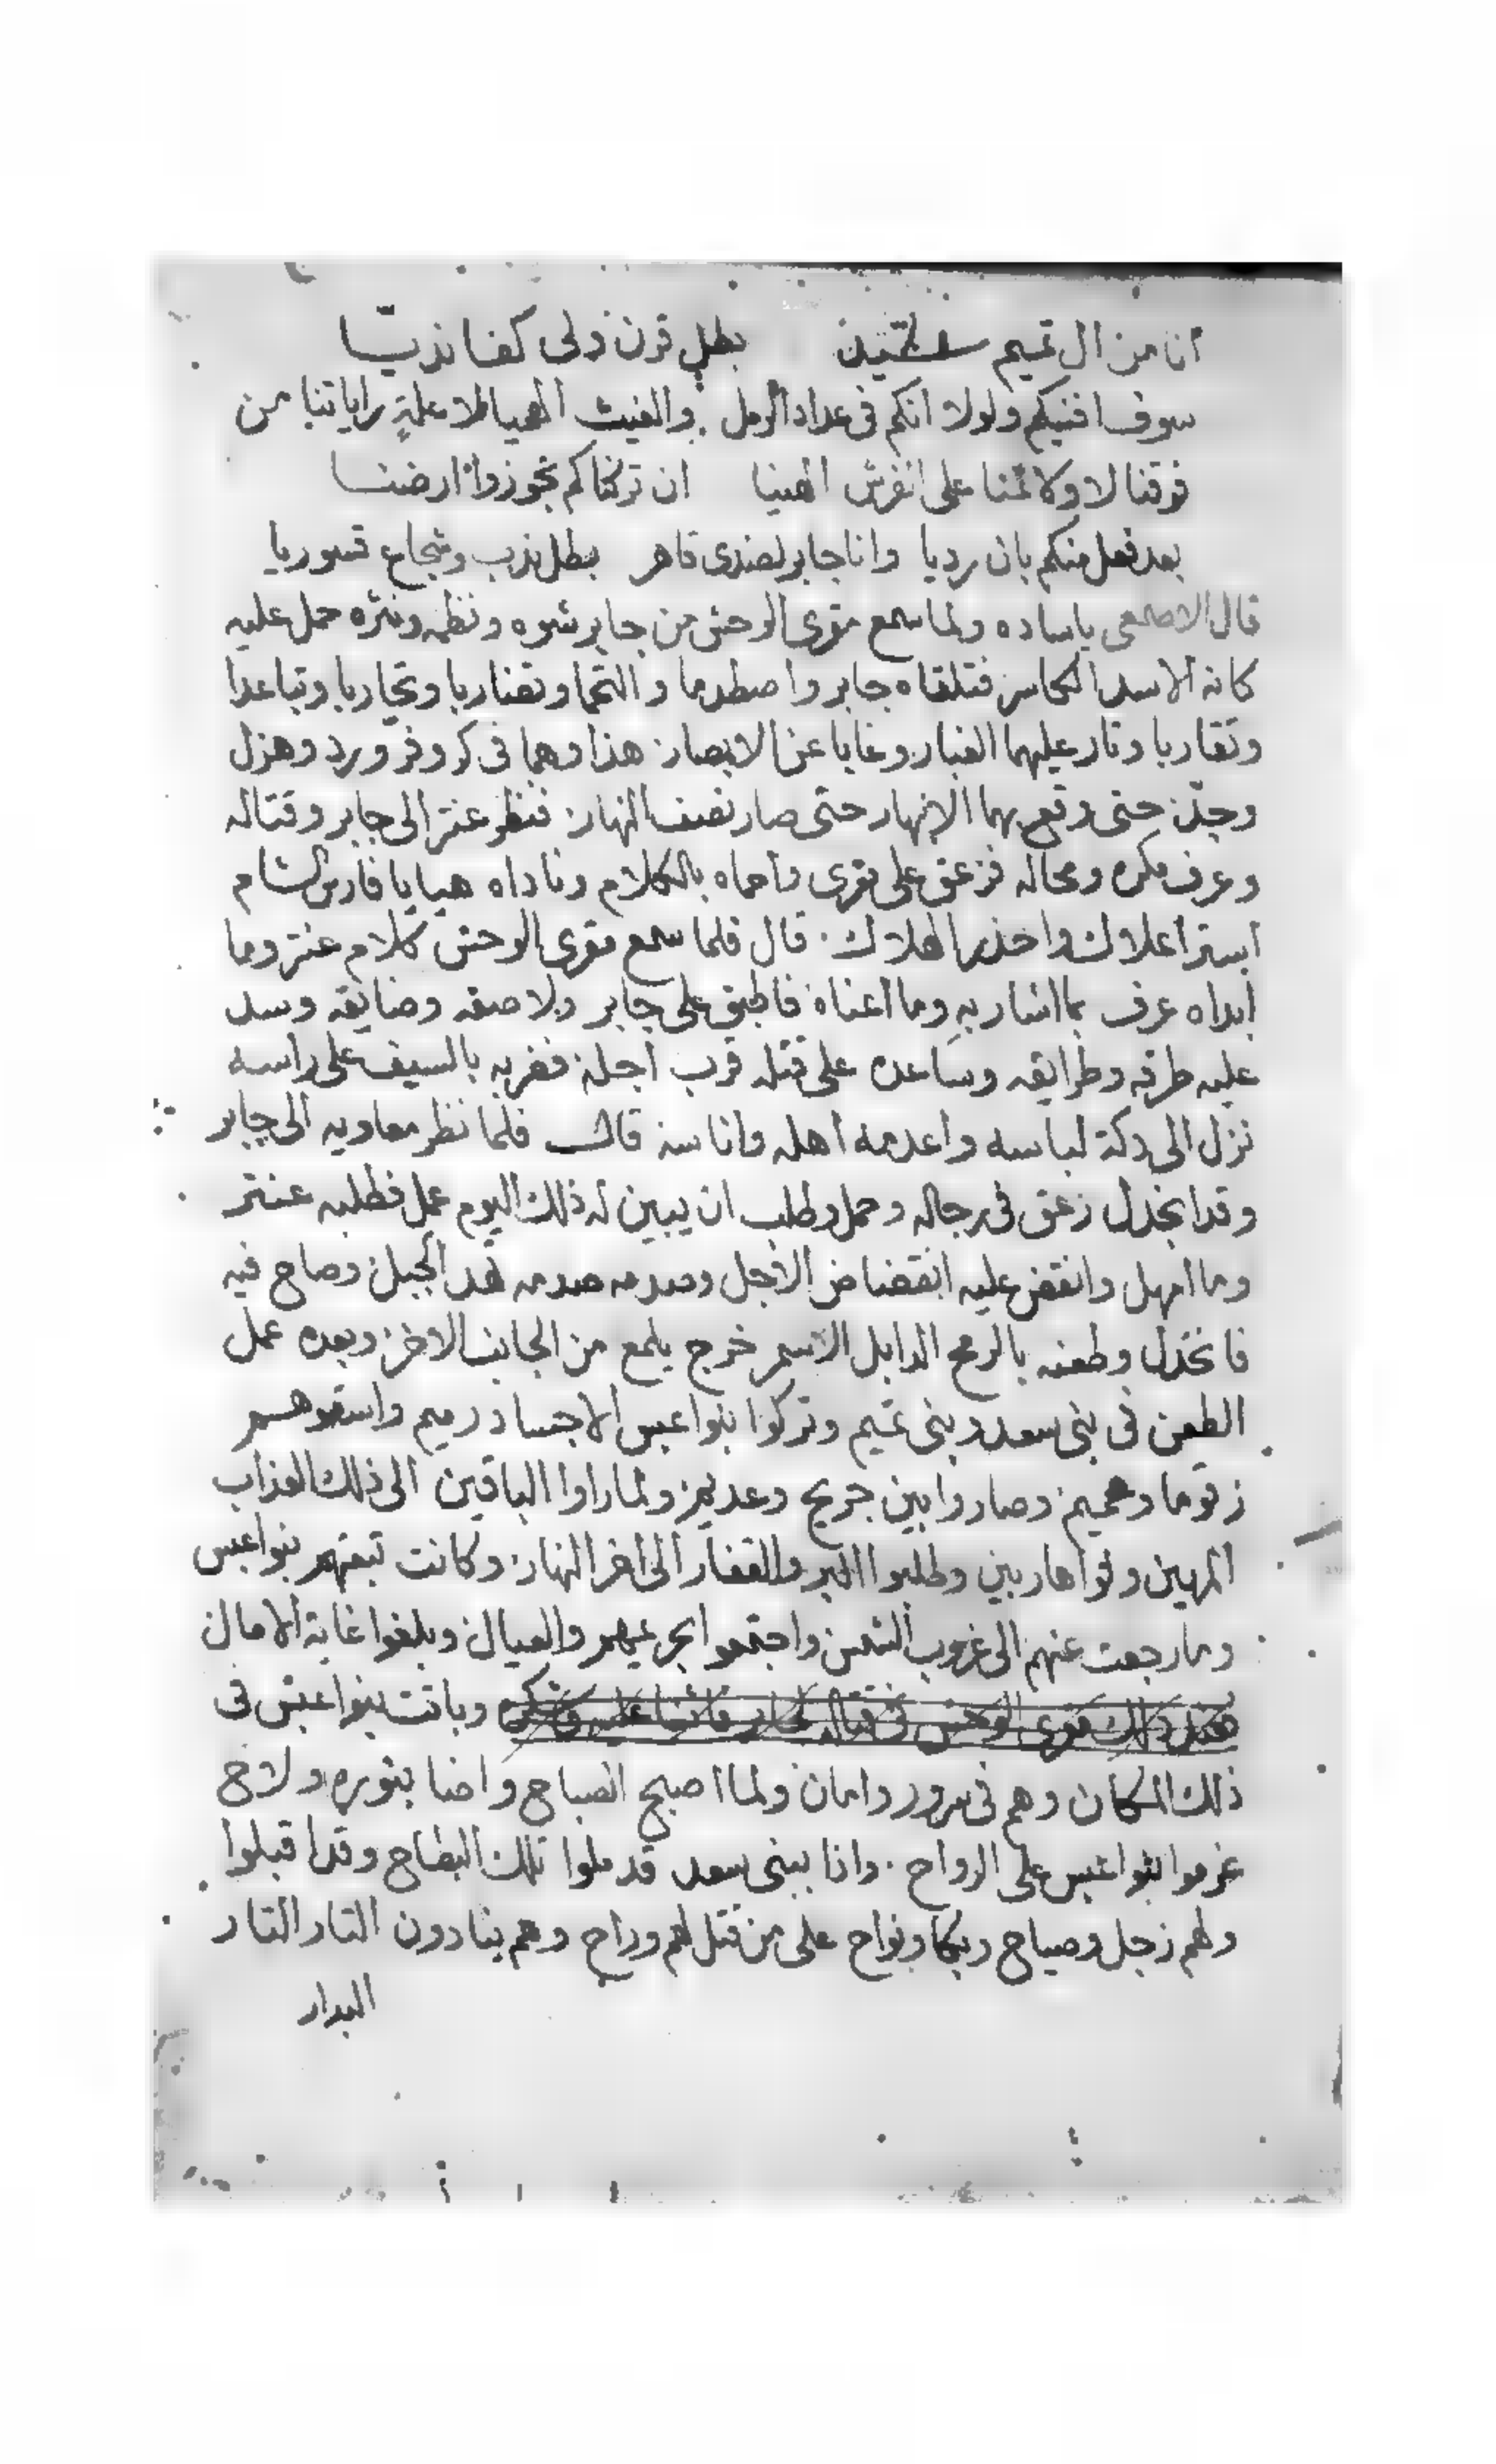 انا من ال تميم بطل قرن ذلى كفا ندبيّا
سوف افنيكم ولولا انكم فى عداد الرمل والغيث الهيالا راياتنا من
فوقنا لا ولا نمنا على الفرش الهنيا ان تركناكم تجوزوا ارضنا
بعد فعل منكم بان رديا وانا جابر لضدى قاهر بطل ندب وشجاع قسوريا
قال الاصمعى ياساده ولما سمع مقرى الوحش من جابر شعره ونظمه ونثره حمل عليه
كانه الاسد الكاسر فتلقاه جابر واصطدما والتحما وتضاربا وتحاربا وتباعدا
وتقاربا وثار عليهما الغبار وغابا عن الابصار هذا وهما فى كر وفر ورد وهزل
وجدّ حتى وقع بهما الانبهار حتى صار نصف النهار فنظر عنتر الى جابر وقتاله
وعرف مكره ومحاله فزعق على مقرى واحماه بالكلام وناداه هيا يا فارس الشام
ابستر اعلاك واحذر الهلاك قال فلما سمع مقرى الوحش كلام عنتر وما
ابداه عرف بما اشار به وما اعناه فاطبق على جابر ولاصقه وضايقه وسد
عليه طرقه وطرايقه وساعده على قتله قرب اجله فضربه بالسيف على راسه
نزل الى دكة لباسه واعدمه اهله واناسه قال فلما نظر معاويه الى جابر
وقد انجدل زعق فى رجاله وحمل وطلب ان يبين له ذلك اليوم عمل فطلبه عنتر
وما امهل وانقض عليه انقضاض الاجل وصدمه صدمه تهد الجبل وصاح فيه
فانخذل وطعنه بالرمح الدابل الاسمر خرج يلمع من الجانب الاخر وبعده عمل
الطعن فى بنى سعد وبنى تميم وتركوا بنوا عبس الاجساد رميم واسقوهم
زقوما وحميم وصاروا بين جريح وعديم ولما راوا الباقين الى ذلك العذاب
المهين ولوا هاربين وطلبوا البر والقفار الى اخر النهار وكانت تبعتهم بنوا عبس
وما رجعت عنهم الى غروب الشمس واجتمعوا بحريمهم والعيال وبلغوا غاية الامال
فعند ذلك مقرى الوحش فى قتاله وباتت بنوا عبس فى
ذلك المكان وهم فى سرور وامان ولما اصبح الصباح واضا بنوره ولاح
عزموا بنوا عبس على الرواح واذا ببنى سعد قد ملوا تلك البطاح وقد اقبلوا
ولهم زجل وصياح وبكا ونواح على من قتل لهم وراح وهم ينادون التار التار
البدار